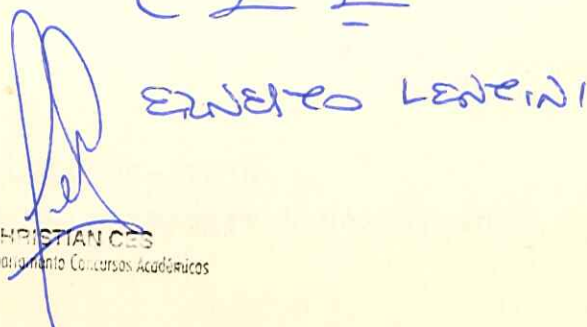 ERNESTO LENTINI
HRISTIAN CES
Concursos Académicos